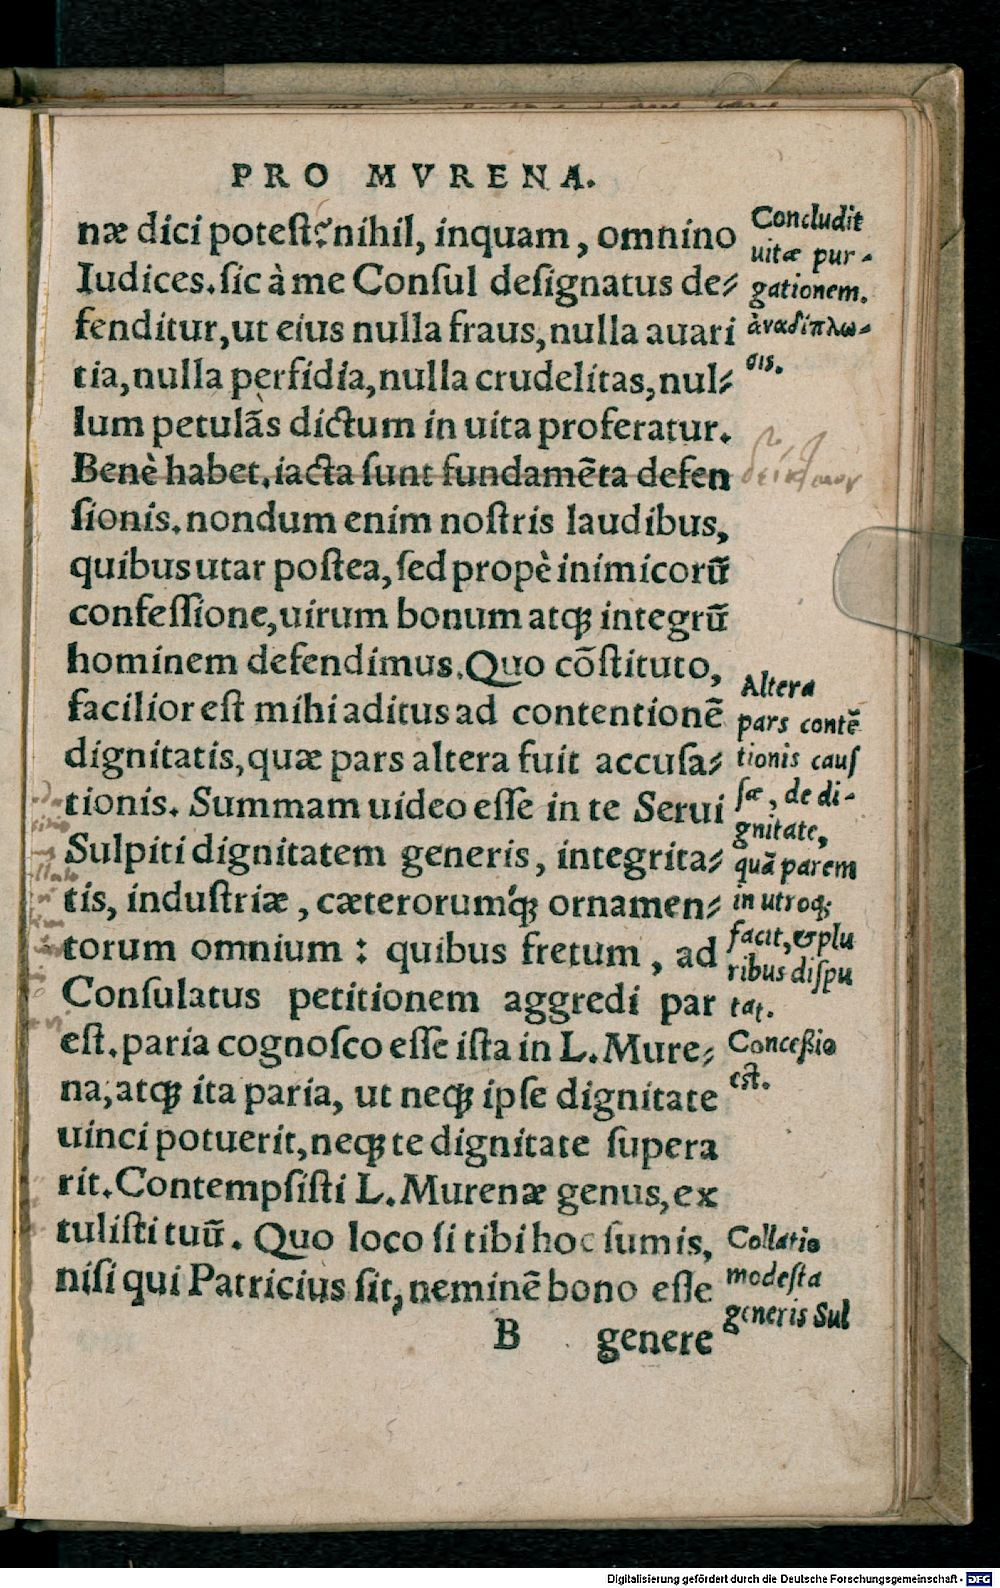 PRO MVRENA.
næ dici potest? nihil, inquam, omnino
Iudices. sic à me Consul designatus de⸗
fenditur, ut eius nulla fraus, nulla auari
tia, nulla perfidia, nulla crudelitas, nul⸗
lum petulãs dictum in uita proferatur.
Benè habet. iacta sunt fundamẽta defen
sionis. nondum enim nostris laudibus,
quibus utar postea, sed propè inimicorũ
confessione, uirum bonum atq; integrũ
hominem defendimus. Quo cõstituto,
facilior est mihi aditus ad contentionẽ
dignitatis, quæ pars altera fuit accusa⸗
tionis. Summam uideo esse in te Serui
Sulpiti dignitatem generis, integrita⸗
tis, industriæ, cæterorum'q; ornamen⸗
torum omnium : quibus fretum, ad
Consulatus petitionem aggredi par
est. paria cognosco esse ista in L. Mure⸗
na, atq; ita paria, ut neq; ipse dignitate
uinci potuerit, neq; te dignitate supera
rit. Contempsisti L. Murenæ genus, ex
tulisti tuũ. Quo loco si tibi hoc sumis,
nisi qui Patricius sit, neminẽ bono esse
B genere
Concludit
uitæ pur-
gationem.
ἀναδίπλω-
σις.
Altera
pars contẽ
tionis caus
sæ, de di-
gnitate,
quã parem
in utroq;
facit, & plu
ribus dispu
tat.
Conceßio
est.
Collatio
modesta
generis Sul
Digitalisierung gefördert durch die Deutsche Forschungsgemeinschaft - DFG